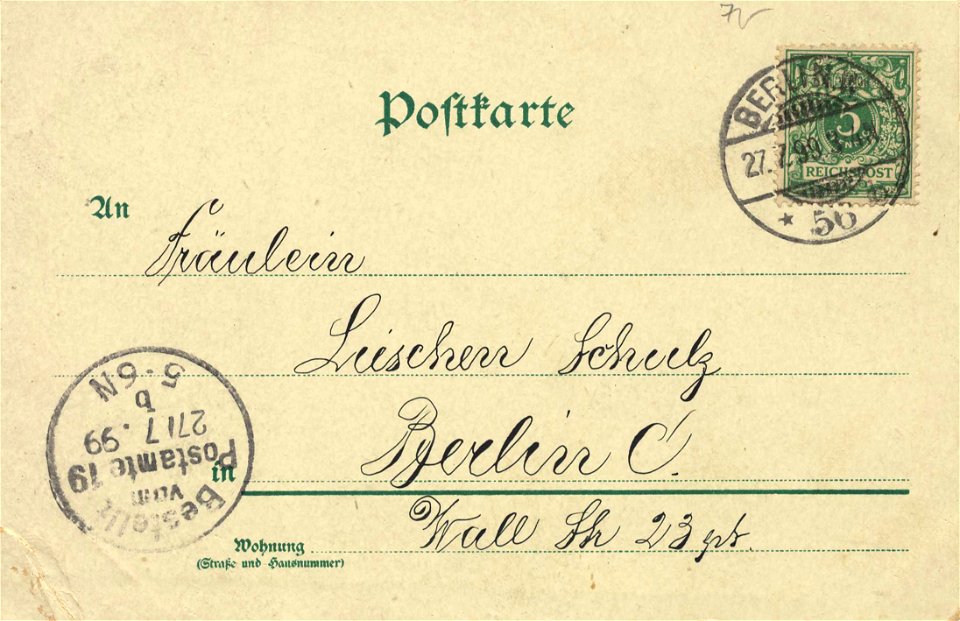 Postkarte
BERLIN W
5
REICHSPOST
27.7.99
* 56
An
Fräulein
Lieschen Schulz
Berlin C.
in
Wall Str 23 pt.
Wohnung
(Straße und Hausnummer)
Bestellt
vom
Postamte 19
27/7.99
b
5-6N